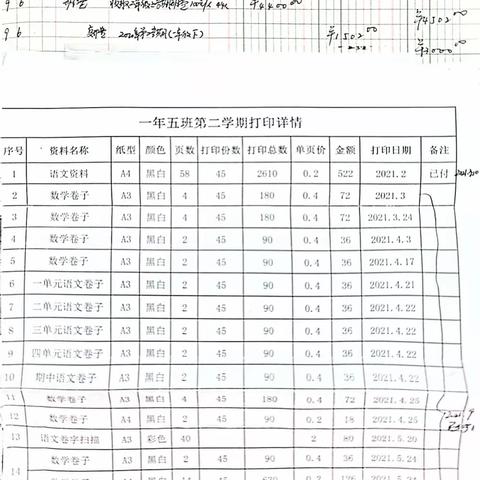 9 6 ¥4400.00
¥4502.00
9 6 ¥1502.00
¥3000.00
一年五班第二学期打印详情
序号 资料名称 纸型 颜色 页数 打印份数 打印总数 单页价 金额 打印日期 备注
1 语文资料 A4 黑白 58 45 2610 0.2 522 2021.2 已付
2 数学卷子 A3 黑白 4 45 180 0.4 72 2021.3
3 数学卷子 A3 黑白 4 45 180 0.4 72 2021.3.24
4 数学卷子 A3 黑白 2 45 90 0.4 36 2021.4.3
5 数学卷子 A3 黑白 2 45 90 0.4 36 2021.4.17
6 一单元语文卷子 A3 黑白 2 45 90 0.4 36 2021.4.21
7 二单元语文卷子 A3 黑白 2 45 90 0.4 36 2021.4.22
8 三单元语文卷子 A3 黑白 2 45 90 0.4 36 2021.4.22
9 四单元语文卷子 A3 黑白 2 45 90 0.4 36 2021.4.22
10 期中语文卷子 A3 黑白 2 45 90 0.4 36 2021.4.22
11 数学卷子 A3 黑白 4 45 180 0.4 72 2021.4.25
12 数学卷子 A4 黑白 2 45 90 0.2 18 2021.4.25
13 语文卷字扫描 A3 彩色 40 2 80 2021.5.20
14 数学卷子 A3 黑白 2 45 90 0.4 36 2021.5.24